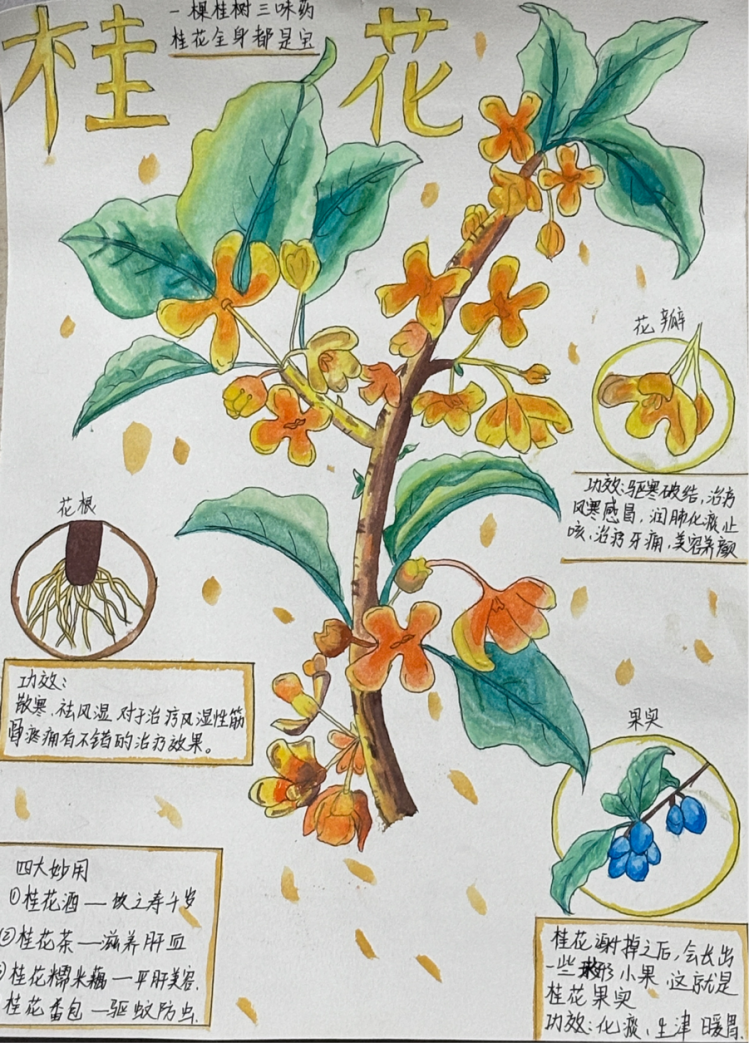 桂花
一棵桂树三味药
桂花全身都是宝
花瓣
功效:驱寒破结,治疗
风寒感冒,润肺化痰止
咳,治疗牙痛,美容养颜
花根
功效:
散寒、祛风湿、对于治疗风湿性筋
骨疼痛有不错的治疗效果。
果实
四大妙用
①桂花酒—饮之寿千岁
②桂花茶—滋养肝血
桂花糯米藕—平肝美容.
桂花香包—驱蚊防虫.
桂花谢掉之后,会长出
一些形小果.这就是
桂花果实
功效:化痰、生津 暖胃.